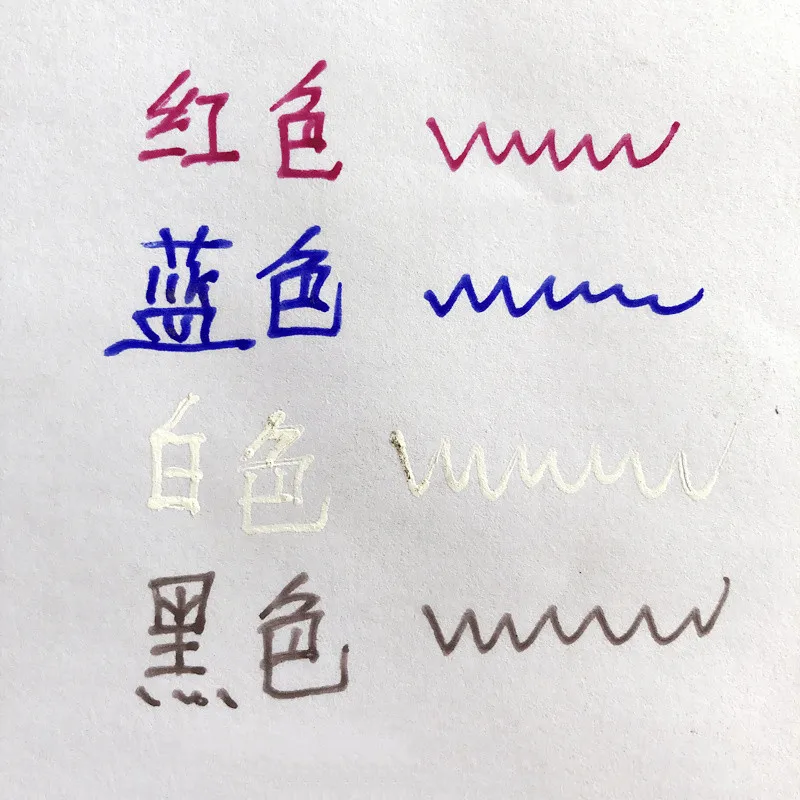 红色
蓝色
白色
黑色